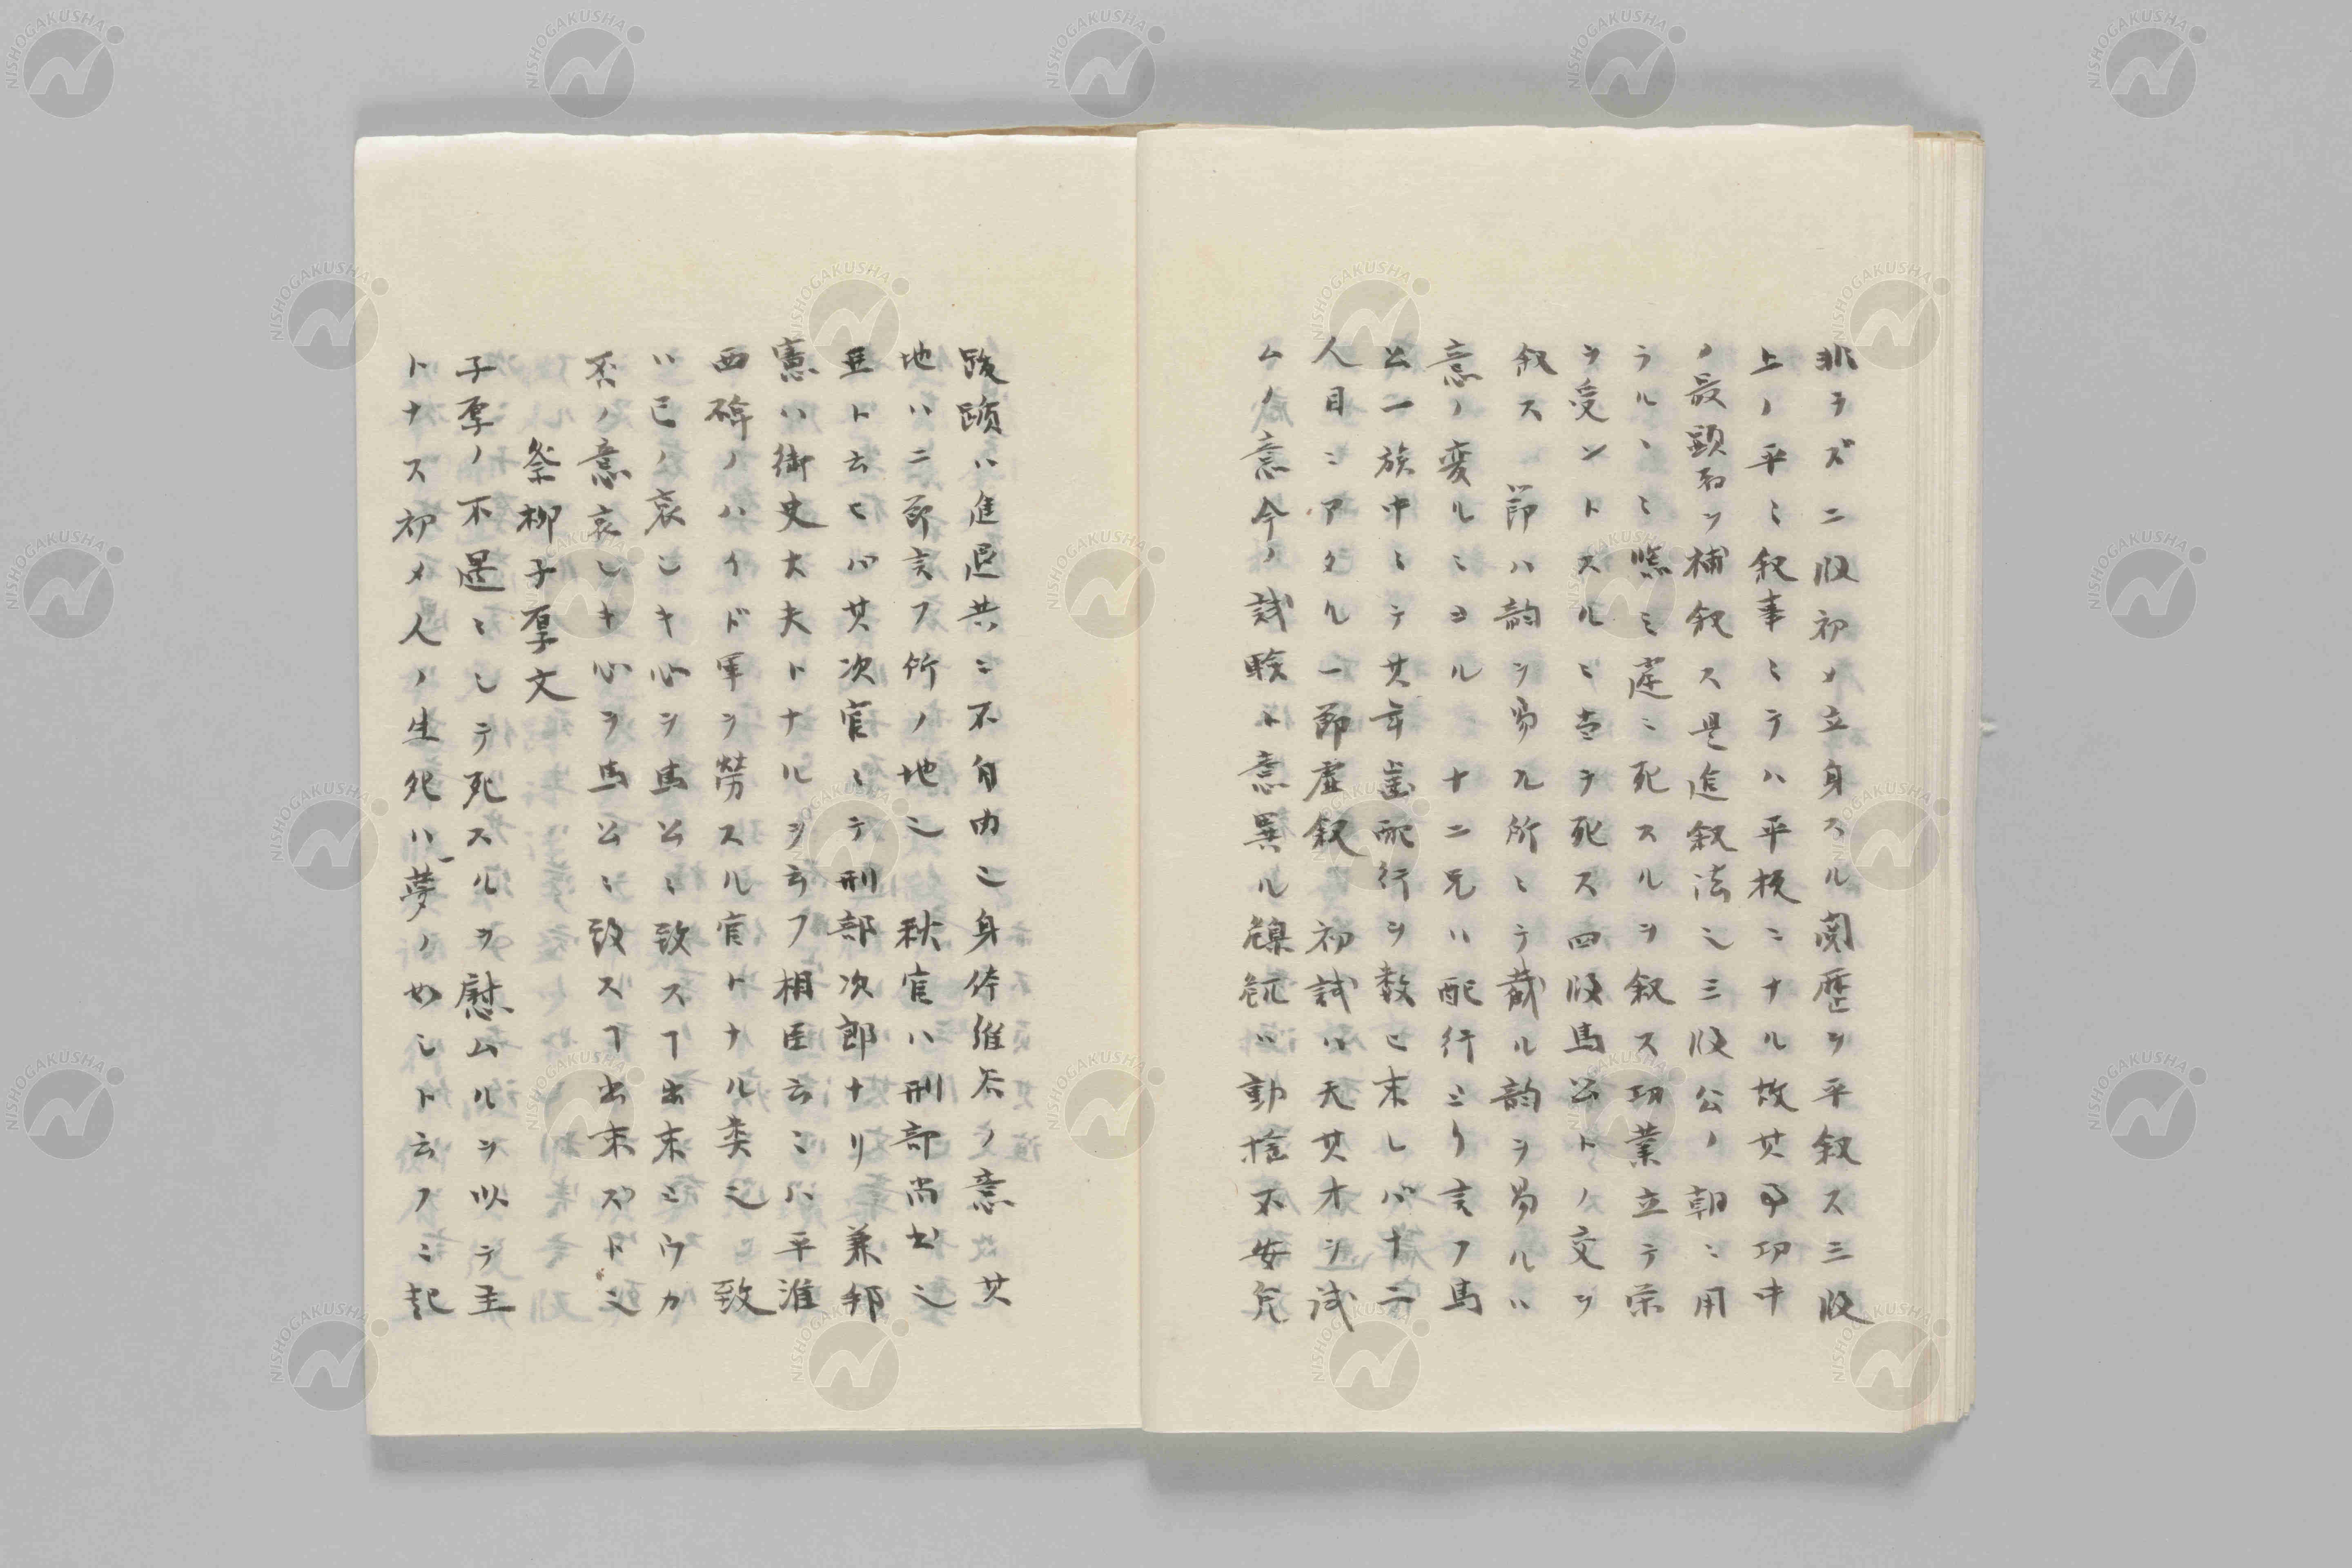 非ラズ二段初メ立身スル閲歴ヲ平叙ス三段
上ノ平ミミ叙事ミテハ平板ニナル故其事功中
ノ最顕ヲ補叙ス是追叙法也三段公ノ朝ニ用
ラルヽミ臨ミ遽ニ死スルヲ叙ス功業立テ栄
ヲ受ントスルミ至テ死ス四段馬公トノ交ヲ
叙ス 節ハ韵ヲ易ル所ミテ蔵ル韵ヲ易ルハ
意ノ変ルミヨル 十二兄ハ配行ミリ言フ馬
公一族中ミテ其年歯配行ヲ数ヒ来レバ十二
人目ミアタル一節虚叙 初試ハ天其才ヲ試
ムノ意今ノ試験ト意異ル 動揺不安皃
跋躓ハ進退共ニ不自由也身体維谷ノ意 其
地ハ二節言フ所ノ地也 秋官ハ刑部尚書也
亜ト云ヒバ其次官ミテ刑部次郎ナリ 兼邦
憲ハ御史大夫トナルヲ云フ相臣云ミハ平淮
西碑ノハイド軍ヲ労スル官トナル类也 致
ハ已ノ哀シキ心ヲ馬公ミ致スヿ出来ミウカ
否ノ意哀シキ心ヲ馬公ミ致スヿ出来ズト也
祭柳子厚文
子厚ノ不遇ミシテ死スルヲ慰ムルヲ以テ主
トナス初メ人ノ生死ハ夢ノ如シト云フミ起
NISHOGAKUSHA